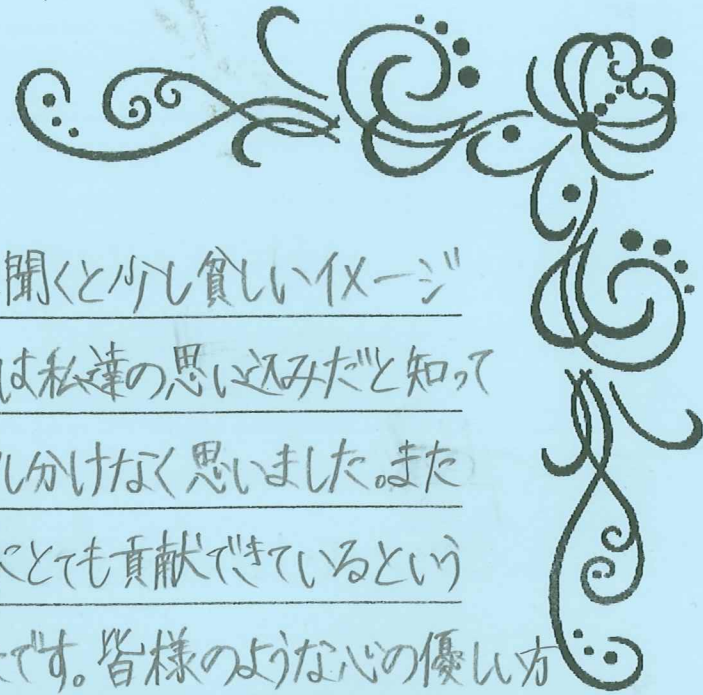 聞くと少し貧しいイメージ
は私達の思い込みだと知って
し分けなく思いました。また
とても貢献できているという
です。皆様のような心の優しい方